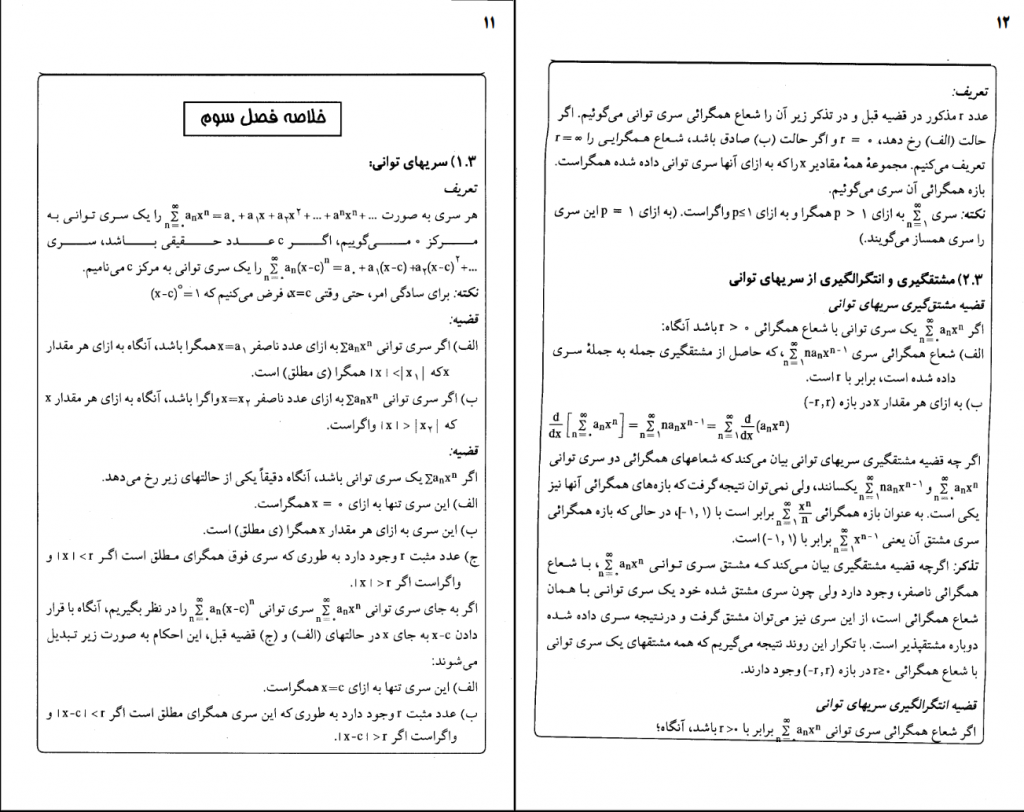 ۱۱
خلاصه فصل سوم
۱.۳) سریهای توانی:
تعریف
هر سری به صورت ...+aⁿxⁿ+...+a₂x²+a₁x+a₀=aₙxⁿ Σ(n=۰ تا ∞) را یک سری توانی به
مرکز ۰ می‌گوییم، اگر c عدد حقیقی باشد، سری
...+a₂(x-c)²+a₁(x-c)+a₀=aₙ(x-c)ⁿ Σ(n=۰ تا ∞) را یک سری توانی به مرکز c می‌نامیم.
نکته: برای سادگی امر، حتی وقتی x=c، فرض می‌کنیم که (x-c)⁰=۱
قضیه:
الف) اگر سری توانی Σaₙxⁿ به ازای عدد ناصفر x=a₁ همگرا باشد، آنگاه به ازای هر مقدار
x که |x|<|x₁| همگرا (ی مطلق) است.
ب) اگر سری توانی Σaₙxⁿ به ازای عدد ناصفر x=x₂ واگرا باشد، آنگاه به ازای هر مقدار x
که |x|>|x₂| واگراست.
قضیه:
اگر Σaₙxⁿ یک سری توانی باشد، آنگاه دقیقاً یکی از حالتهای زیر رخ می‌دهد.
الف) این سری تنها به ازای x = ۰ همگراست.
ب) این سری به ازای هر مقدار x همگرا (ی مطلق) است.
ج) عدد مثبت r وجود دارد به طوری که سری فوق همگرای مطلق است اگر |x|<r و
واگراست اگر |x|>r.
اگر به جای سری توانی Σ(n=۰ تا ∞) aₙxⁿ سری توانی Σ(n=۰ تا ∞) aₙ(x-c)ⁿ را در نظر بگیریم، آنگاه با قرار
دادن x-c به جای x در حالتهای (الف) و (ج) قضیه قبل، این احکام به صورت زیر تبدیل
می‌شوند:
الف) این سری تنها به ازای x=c همگراست.
ب) عدد مثبت r وجود دارد به طوری که این سری همگرای مطلق است اگر |x-c|<r و
واگراست اگر |x-c|>r.
۱۲
تعریف:
عدد r مذکور در قضیه قبل و در تذکر زیر آن را شعاع همگرائی سری توانی می‌گوئیم. اگر
حالت (الف) رخ دهد، r = ۰ و اگر حالت (ب) صادق باشد، شعاع همگرایی را r=∞
تعریف می‌کنیم. مجموعهٔ همهٔ مقادیر x راکه به ازای آنها سری توانی داده شده همگراست.
بازه همگرائی آن سری می‌گوئیم.
نکته: سری Σ(n=۱ تا ∞) به ازای p > ۱ همگرا و به ازای p≤۱ واگراست. (به ازای p = ۱ این سری
را سری همساز می‌گویند.)
۲.۳) مشتقگیری و انتگرالگیری از سریهای توانی
قضیه مشتق‌گیری سریهای توانی
اگر Σ(n=۰ تا ∞) aₙxⁿ یک سری توانی با شعاع همگرائی r > ۰ باشد آنگاه:
الف) شعاع همگرائی سری Σ(n=۱ تا ∞) naₙxⁿ⁻¹، که حاصل از مشتقگیری جمله به جملهٔ سری
داده شده است، برابر با r است.
ب) به ازای هر مقدار x در بازه (-r,r)
d/dx [Σ(n=۰ تا ∞) aₙxⁿ] = Σ(n=۱ تا ∞) naₙxⁿ⁻¹ = Σ(n=۱ تا ∞) d/dx (aₙxⁿ)
اگر چه قضیه مشتقگیری سریهای توانی بیان می‌کند که شعاعهای همگرائی دو سری توانی
Σ(n=۰ تا ∞) aₙxⁿ و Σ(n=۱ تا ∞) naₙxⁿ⁻¹ یکسانند، ولی نمی‌توان نتیجه گرفت که بازه‌های همگرائی آنها نیز
یکی است. به عنوان بازه همگرائی Σ(n=۱ تا ∞) xⁿ/n برابر است با [-۱,۱)، در حالی که بازه همگرائی
سری مشتق آن یعنی Σ(n=۱ تا ∞) xⁿ⁻¹ برابر با (-۱,۱) است.
تذکر: اگرچه قضیه مشتقگیری بیان می‌کند که مشتق سری توانی Σ(n=۰ تا ∞) aₙxⁿ، با شعاع
همگرائی ناصفر، وجود دارد ولی چون سری مشتق شده خود یک سری توانی با همان
شعاع همگرائی است، از این سری نیز می‌توان مشتق گرفت و درنتیجه سری داده شده
دوباره مشتقپذیر است. با تکرار این روند نتیجه می‌گیریم که همه مشتقهای یک سری توانی
با شعاع همگرائی r≥۰ در بازه (-r,r) وجود دارند.
قضیه انتگرالگیری سریهای توانی
اگر شعاع همگرائی سری توانی Σ(n=۰ تا ∞) aₙxⁿ برابر با r>۰ باشد، آنگاه؛